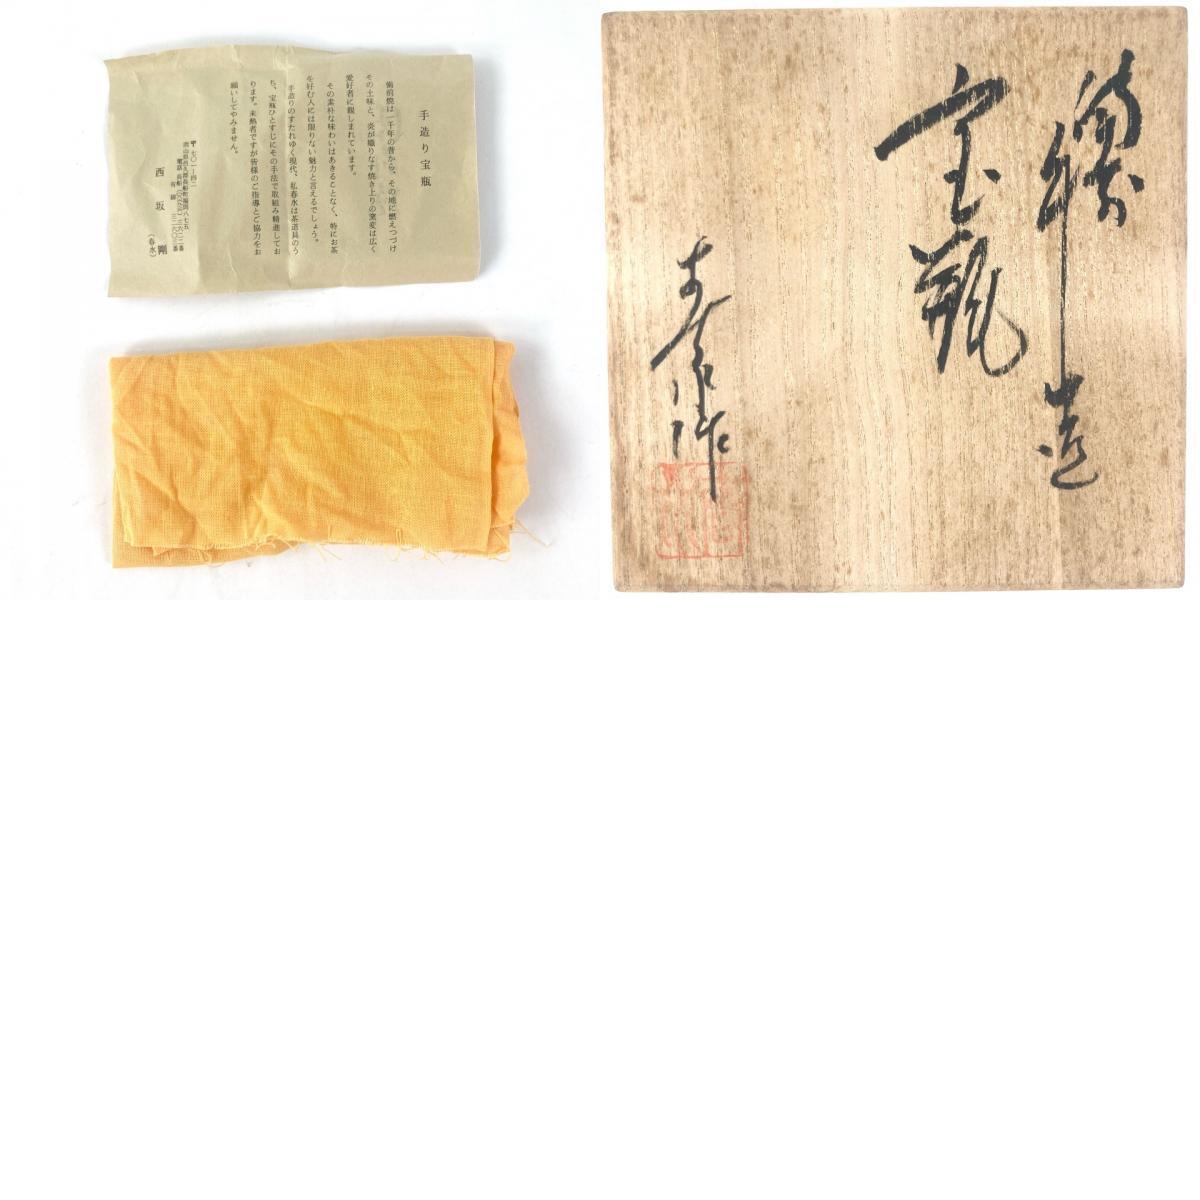 手造り宝瓶
備前焼は一千年の昔から、その地に燃えつづけ
その土味と、炎が織りなす焼き上りの窯変は広く
愛好者に親しまれています。
その素朴な味わいはあきることなく、特にお茶
を好む人には限りない魅力と言えるでしょう。
手造りのすたれゆく現代、私春水は茶道具のう
ち、宝瓶ひとすじにその手法で取組み精進してお
ります。未熟者ですが皆様のご指導とご協力をお
願いしてやみません。
西坂 剛
(春水)
備前 手造
宝瓶
春水作